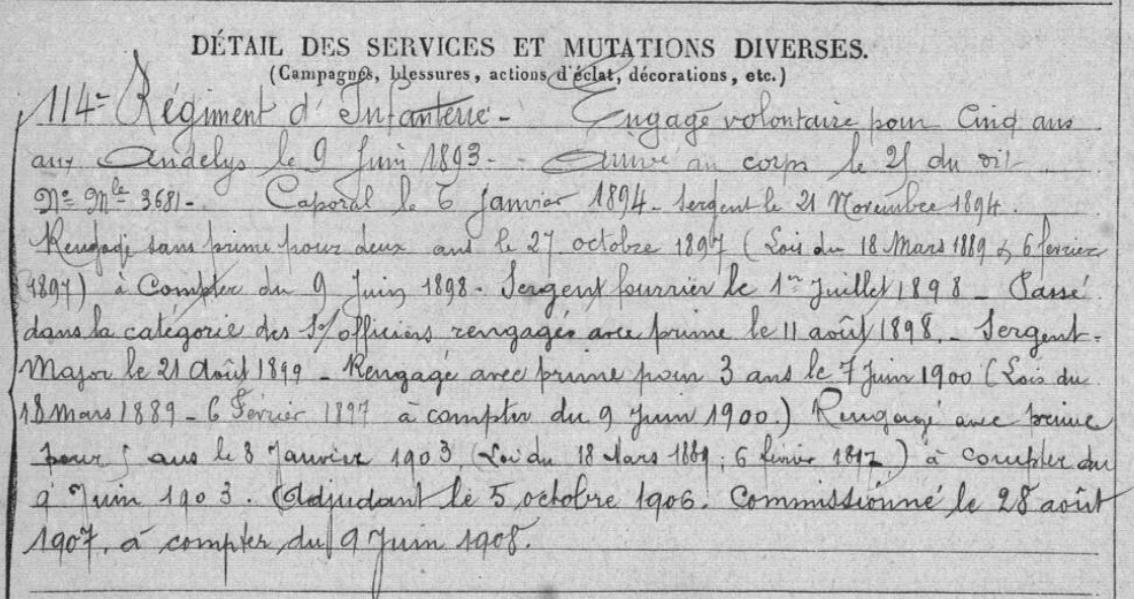 DÉTAIL DES SERVICES ET MUTATIONS DIVERSES.
(Campagnes, blessures, actions d'éclat, décorations, etc.)
114e Régiment d'Infanterie - Engagé volontaire pour Cinq ans
aux Andelys le 9 Juin 1893 - Arrivé au corps le du dit
No Mle 3681 - Caporal le 6 Janvier 1894 - Sergent le 21 Novembre 1894.
Rengagé sans prime pour deux ans le 27 octobre 1897 (Lois du 18 Mars 1889 & 6 février
1897) à Compter du 9 Juin 1898 - Sergent fourrier le 1er Juillet 1898 - Passé
dans la catégorie des S/officiers rengagés avec prime le 11 août 1898. - Sergent-
Major le 21 Août 1899 - Rengagé avec prime pour 3 ans le 7 Juin 1900 (Lois du
18 Mars 1889 - 6 Février 1897 à compter du 9 Juin 1900.) Rengagé avec prime
pour 5 ans le 8 Janvier 1903, (Loi du 18 Mars 1889 ; 6 février ) à compter du
9 Juin 1903. Adjudant le 5 octobre 1906. Commissionné le 28 août
1907, à compter du 9 Juin 1908.